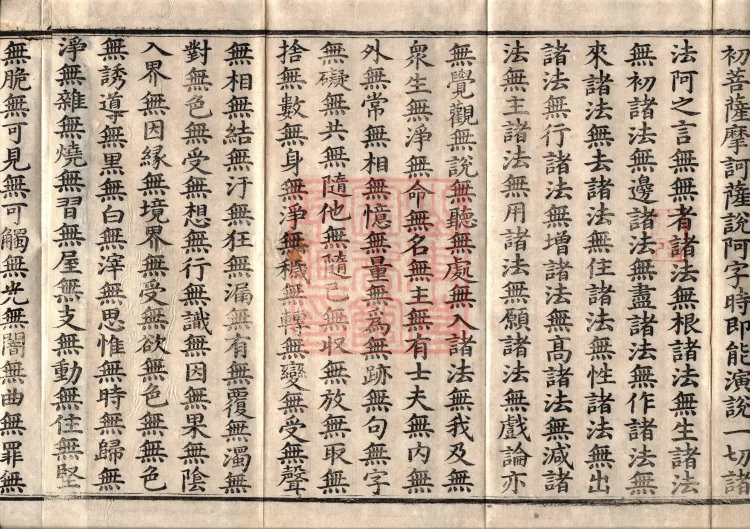 初菩薩摩訶薩說阿字時即能演說一切諸
法阿之言無無者諸法無根諸法無生諸法
無初諸法無邊諸法無盡諸法無作諸法無
來諸法無去諸法無住諸法無性諸法無出
諸法無行諸法無增諸法無高諸法無減諸
法無主諸法無用諸法無願諸法無戲論亦
無覺觀無說無聽無處無入諸法無我及無
衆生無淨無命無名無主無有士夫無內無
外無常無相無憶無量無爲無跡無句無字
無礙無共無隨他無隨己無収無放無取無
捨無數無身無淨無穢無轉無變無受無聲
無相無結無汙無狂無漏無有無覆無濁無
對無色無受無想無行無識無因無果無陰
入界無因緣無境界無受無欲無色無無色
無誘導無黒無白無滓無思惟無時無歸無
淨無雜無燒無習無屋無支無動無住無堅
無脆無可見無可觸無光無闇無曲無罪無